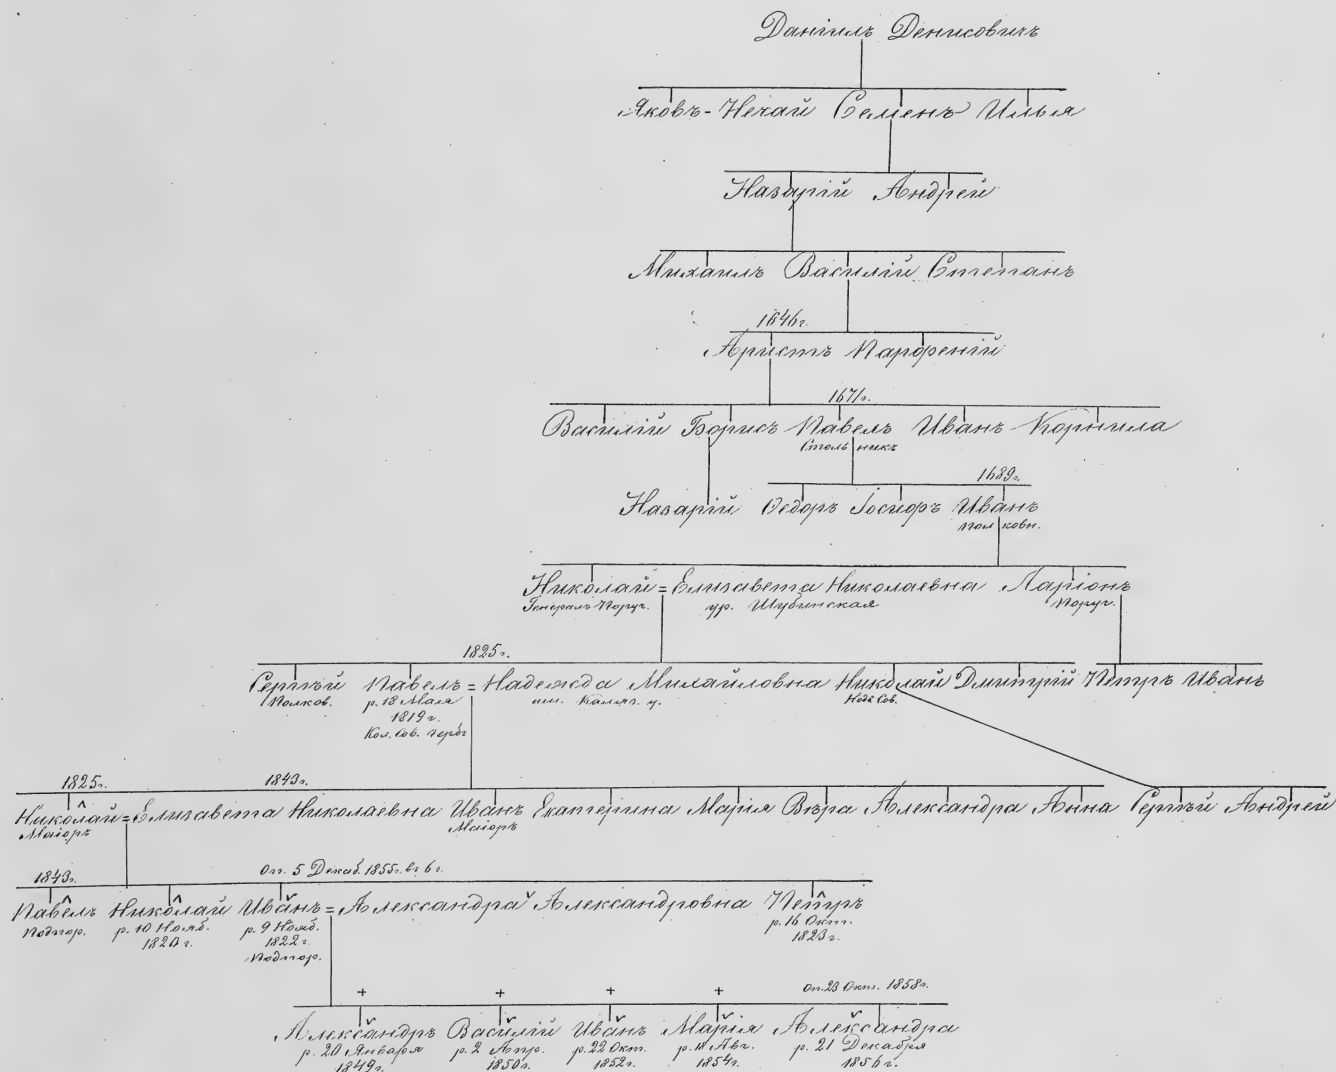 Данiилъ Денисовичъ
Яковъ-Нечай Семенъ Илья
Назарiй Андрей
Михаилъ Василiй Степанъ
1646г.
Аристъ Парфенiй
1671г.
Василiй Борисъ Павелъ Иванъ Корнила
Стольникъ
1689г.
Назарiй Ѳедоръ Iосифъ Иванъ
Полковн.
Николай = Елизавета Николаевна Ларiонъ
Генералъ Поруч. ур. Шубинская Поруч.
1825г.
Сергѣй Павелъ = Надежда Михайловна Николай Дмитрiй Петръ Иванъ
Полков. р. 18 Мая им. Каляз. у. Надв. Сов.
1819 г.
Кол. Сов.
1825г. 1843г.
Николай = Елизавета Николаевна Иванъ Екатерина Марiя Вѣра Александра Анна Сергѣй Андрей
Маiоръ Маiоръ
1843г. Оп. 5 Декаб. 1855г. въ 6 г.
Павелъ Николай Иванъ = Александра Александровна Петръ
Подпор. р. 10 Нояб. р. 9 Нояб. р. 16 Окт.
1822г. 1823г.
Подпор.
+ + + + Оп. 23 Окт. 1858г.
Александръ Василiй Иванъ Марiя Александра
р. 20 Января р. 2 Апр. р. 22 Окт. р. 18 Авг. р. 21 Декабря
1849г. 1850г. 1852г. 1854г. 1856г.